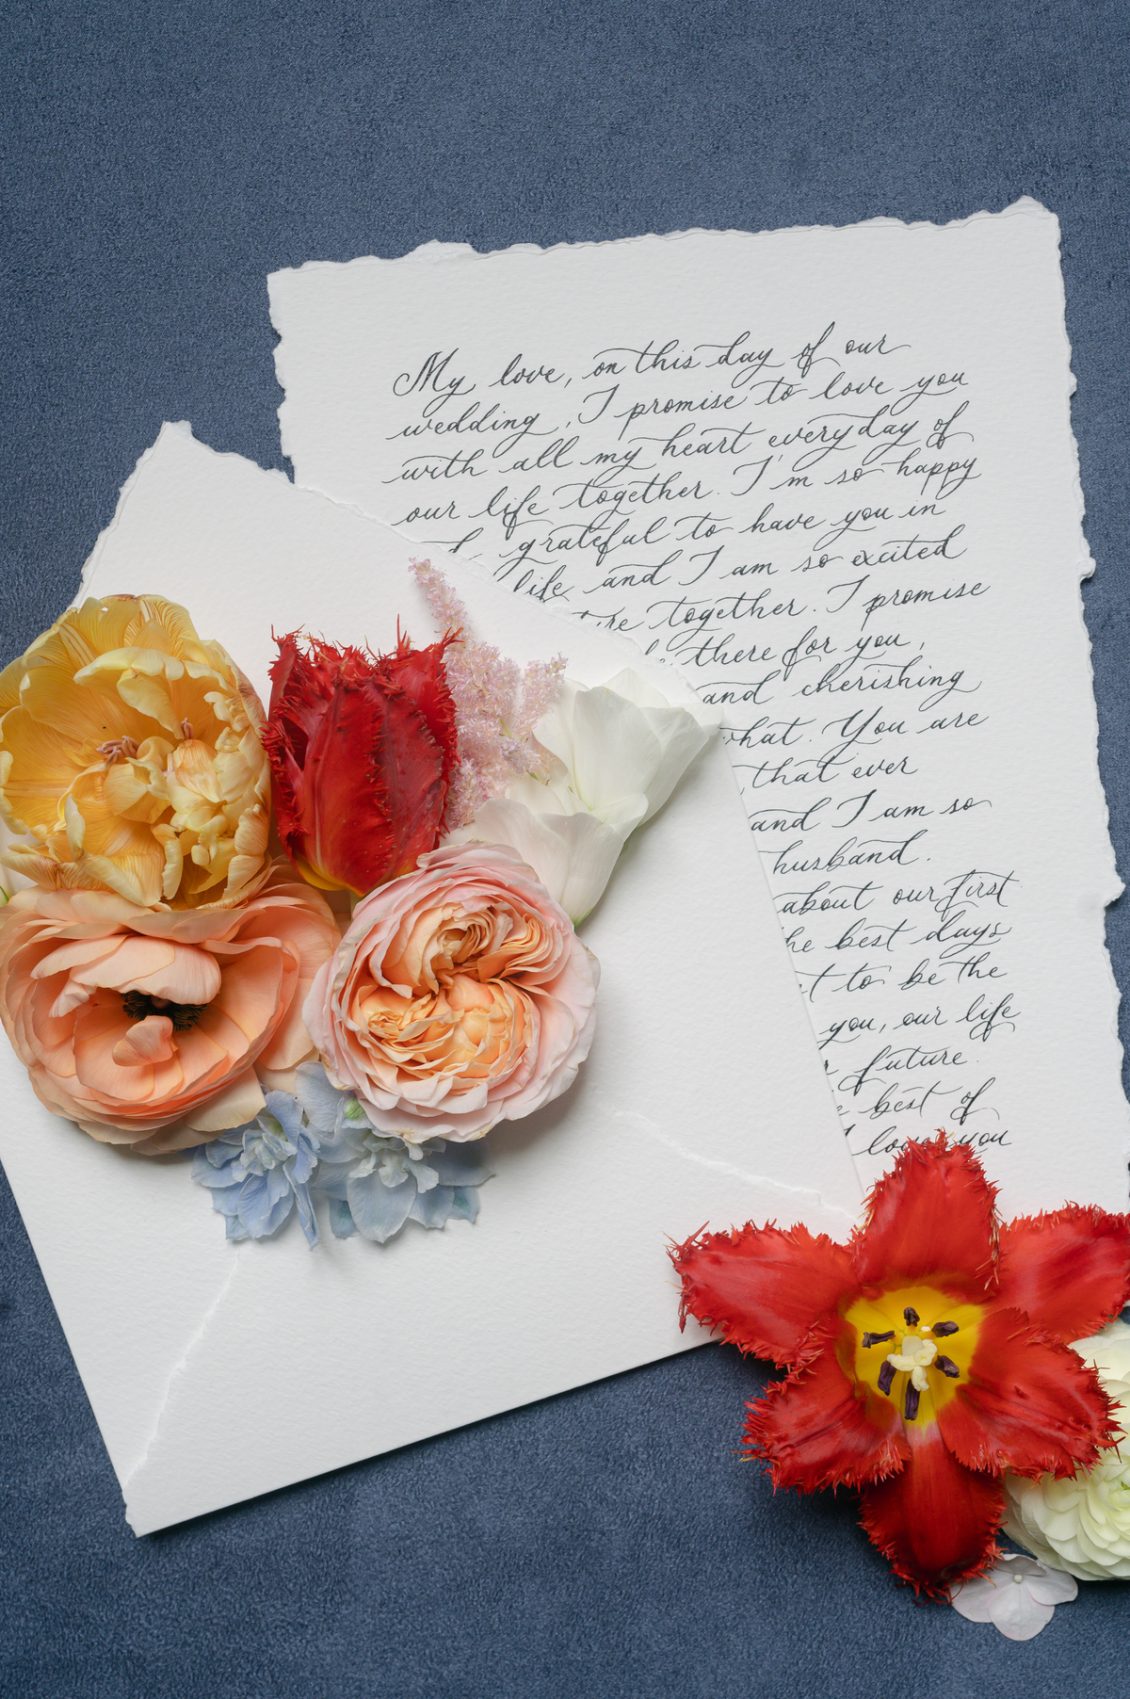 My love, on this day of our
wedding, I promise to love you
with all my heart everyday of
our life together. I'm so happy
grateful to have you in
life and I am so excited
together. I promise
there for you,
and cherishing
what. You are
that ever
and I am so
husband.
about our first
the best days
to be the
you, our life
future.
best of
love you